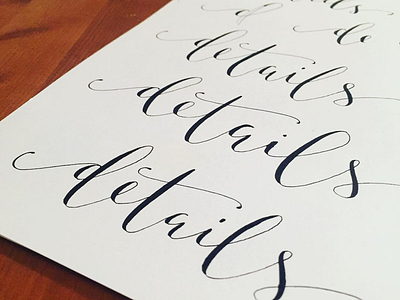 d de
details
details
details